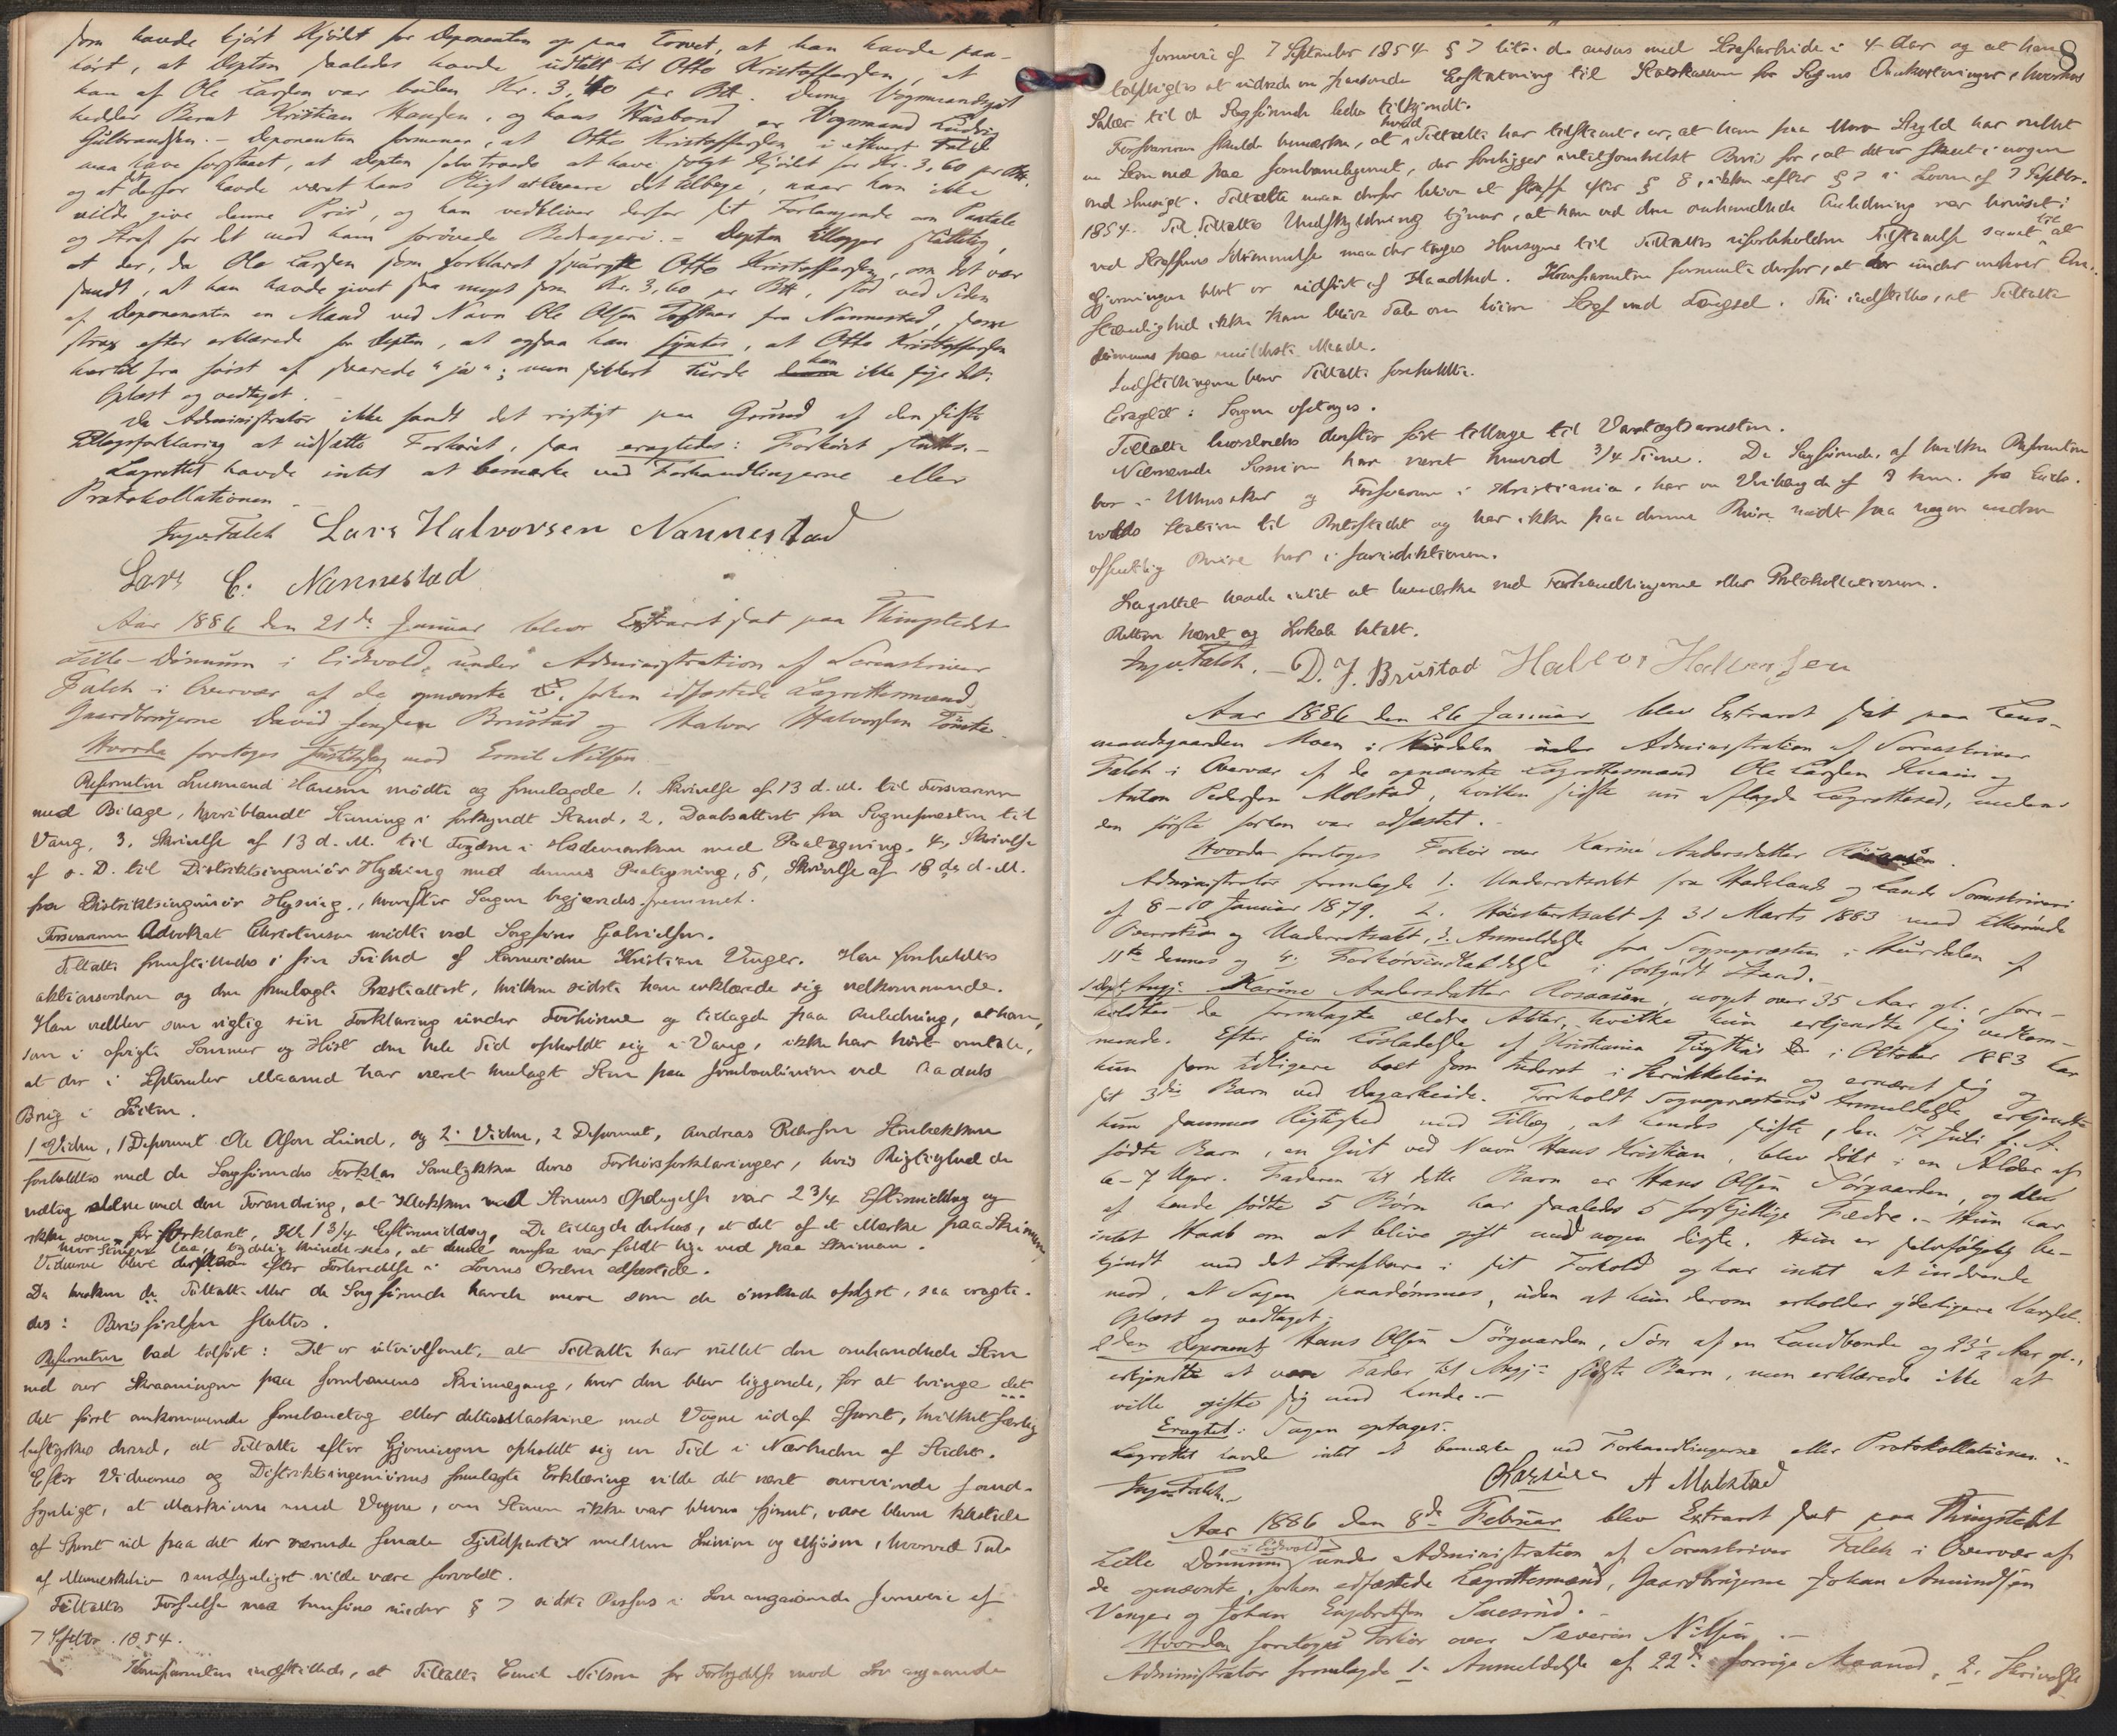 som havde kjørt Kjødet for Deponenten op paa Torvet, at han havde paa-
hørt, at Depten saaledes havde udtalt til Otto Kristoffersen, at
han af Ole Larsen var buden Kr. 3,40 pr Btt. Denne Vognmandsgut
hedder Bernt Kristian Hansen, og hans Husbond er Vognmand Ludvig
Gulbrandsen. - Deponenten formener, at Otto Kristoffersen i ethvert Fald
maa have forstaaet, at Depten selv troede at have solgt Kjødet for Kr. 3,60 pr Btt.
og at det derfor havde været hans Pligt at levere det tilbage, naar han ikke
vilde give denne Pris, og han vedbliver derfor sit Forlangende om Paatale
og Straf for det mod ham forøvede Bedrageri. - Depten tillægger sluttelig,
at der, da Ole Larsen som forklaret spurgte Otto Kristoffersen, om det var
sandt, at han havde givet saa meget som Kr. 3,60 pr Btt, stod ved Siden
af Deponenten en Mand ved Navn Ole Olsen Toftner fra Nannestad, som
strax efter erklærede for Depten, at ogsaa han syntes, at Otto Kristoffersen
hertil fra først af svarede "ja"; men sikkert turde han ikke sige det.
Oplæst og vedtaget. -
Da Administrator ikke fandt det rigtigt paa Grund af den sidste
Tillægsforklaring at udsætte Forhøret, saa eragtedes: Forhøret sluttes. -
Lagrettet havde intet at bemærke ved Forhandlingerne eller
Protokollationen. -
Inger Falch Lars Halvorsen Nannestad
Lars C. Nannestad
Aar 1886 den 21de Januar blev Extraret sat paa Thingstedet
Lille-Dønnum i Eidsvold, under Administration af Sorenskriver
Falch i Overvær af de opnævnte forhen edfæstede Lagrettesmænd,
Gaardbrugerne David Jensen Brustad og Halvor Halvorsen Tømte.
Hvorda foretoges Justitssag mod Emil Nilsen.
Referenten Lensmand Hansen mødte og fremlagde 1. Skrivelse af 13 d. M. til Forsvareren
med Bilage, hvoriblandt Stevning i forkyndt Stand, 2. Daabsattest fra Sognepræsten til
Vang, 3. Skrivelse af 13 d. M. til Fogden i Hedemarken med Paategning. 4, Skrivelse
af s. D. til Distriktsingeniør Hysing med dennes Paategning, 5, Skrivelse af 18de d. M.
fra Distriktsingeniør Hysing, hvorefter Sagen begjæredes fremmet.
Forsvareren Advokat Christensen mødte ved Sagfører Gabrielsen.
Tiltalte fremstilledes i sin Frihed af Kannevidne Kristian Unger. Han foreholdtes
aktionsordren og den fremlagte Præsteattest, hvilken sidste han erklærede sig vedkommende.
Han vedblev som rigtig sin Forklaring under Forhørene og tillagde paa Anledning, at han,
som i afvigte Sommer og Høst den hele Tid opholdt sig i Vang, ikke har hørt omtale,
at der i September Maaned har været henlagt Sten paa Jernbanelinien ved Raaduls
Brug i Feiten.
1 Vidne, 1 Deponent Ole Olsen Lund, og 2. Vidne, 2 Deponent, Andreas Pedersen Stenbekken
foreholdtes med de Sagførendes Samtykke deres Forhørsforklaringer, hvis Rigtighed de
vedtog alene med den Forandring, at Klokken ved Stenens Opdagelse var 2 3/4 Eftermiddag og
ikke, som før forklaret, Kl. 1 3/4 Eftermiddag. De tillagde derhos, at det af et Mærke paa Skinnen,
hvor Stenen laa, tydelig kunde sees, at denne ovenfra var faldt lige ned paa Skinnen.
Vidnerne bleve derefter efter Forberedelse i Lovens Orden edfæstede.
Da hverken de Tiltalte eller de Sagførende havde mere som de ønskede oplyst, saa eragte-
des: Bevisførelsen sluttes.
Referenten bad tilført: Det er utvivlsomt, at Tiltalte har rullet den omhandlede Sten
ned over Skraaningen paa Jernbanens Skinnegang, hvor den blev liggende, for at bringe det
det først ankommende Jernbanetog eller dettes Maskine med Vogne ud af Sporet, hvilket særlig
bestyrkes derved, at Tiltalte efter Gjerningen opholdt sig en Tid i Nærheden af Stedet.
Efter Vidnernes og Distriktsingeniørens fremlagte Erklæring vilde det været overveiende sand-
synligt, at Maskinen med Vogne, om Stenen ikke var bleven fjernet, vare blevne kastede
af Sporet ud paa det der værende smale Fjeldparti mellem Linien og Mjøsen, hvorved Tab
af Menneskeliv sandsynligvis vilde være forvoldt.
Tiltaltes Forseelse maa henføres under § 7 sidste Passus i Lov angaaende Jernveie af
7 Septbr. 1854.
Referenten indstillede, at Tiltalte Emil Nilsen for Forbrydelse mod Lov angaaende
8
Jernveie af 7 September 1854 § 7 litr. d. ansees med Strafarbeide i 4 Aar og at han
tilpligtes at udrede en passende Erstatning til Statskassen for Sagens Omkostninger, hvorhos
Salær til de Sagførende bedes tilkjendt.
Forsvareren skulde bemærke, at i hvad Tiltalte har tilstaaet, er, at han paa Moro Skyld har rullet
en Sten ned paa Jernbanelegemet, der foreligger intetsomhelst Bevis for, at det er skeet i nogen
ond Hensigt. Tiltalte maa derfor blive at straffe efter § 8, ikke efter § 7 i Loven af 7 Septbr.
1854. Til Tiltaltes Undskyldning tjener, at han ved den omhandlede Anledning var beruset;
ved Straffens Udmaaling maa der tages Hensyn til Tiltaltes uforbeholdne Tilstaaelse samt til at
Gjerningen blot er udført af Kaadhed. Forsvareren formente derfor, at der under enhver Om-
stændighed ikke kan blive Tale om høiere Straf end Fængsel. Thi indstilles, at Tiltalte
dømmes paa mildeste Maade.
Indstillingerne blev Tiltalte foreholdte.
Eragtet: Sagen optages.
Tiltalte hvorledes derefter ført tilbage til Varetægtsarresten.
Nærværende Session har været hævet 3/4 Time. De Sagførende, af hvilke Referenten
bor i Ullensaker og Forsvareren i Kristiania, har en Veilængde af 9 km. fra Eids-
volds Station til Retsstedet og har ikke paa denne Reise mødt paa nogen anden
offentlig Reise her i Jurisdiktionen.
Lagrettet havde intet at bemærke ved Forhandlingerne eller Protokollationen.
Retten hævet og Lokale betalt.
Inger Falch. - D. J. Brustad Halvor Halvorsen
Aar 1886 den 26 Januar blev Extraret sat paa Lens-
mandsgaarden Moen i Hurdalen under Administration af Sorenskriver
Falch i Overvær af de opnævnte Lagrettesmænd Ole Larsen Knain og
Anton Pedersen Molstad, hvilken sidste nu aflagde Lagretteed, medens
den første forhen var edfæstet. -
Hvorda foretoges Forhør over Karine Andersdatter Rosaasen.
Administrator fremlagde 1. Underretsakt fra Hadeland og Lands Sorenskriveri
af 8-10 Januar 1879. 2. Høiesteretsakt af 31 Marts 1883 med tilhørende
Overrets og Underretsakt, 3. Anmeldelse fra Sognepræsten i Hurdalen af
11te dennes og 4, Forhørsindkaldelse i forkyndt Stand. -
1 Dept. Angj. Karine Andersdatter Rosaasen, noget over 35 Aar gl., fore-
holdtes de fremlagte ældre Akter, hvilke hun erkjendte sig vedkom-
mende. Efter sin Løsladelse af Kristiania Tugthus i October 1883 har
hun som tidligere boet som Inderst i Skrukkelien og ernæret sig og
sit 3die Barn ved Dagarbeide. Foreholdt Sognepræstens Anmeldelse, erkjendte
hun sammes Rigtighed med Tillæg, at hendes sidste, den 17 Juli f. A.
fødte Barn, en Gut ved Navn Hans Kristian, blev dødt i en Alder af
6-7 Uger. Faderen til dette Barn er Hans Olsen Sørgaarden, og den
af hende fødte 5 Børn har saaledes 5 forskjellige Fædre. - Hun har
intet Haab om at blive gift med nogen dyste. Hun er selvfølgelig be-
kjendt med det Strafbare i sit Forhold og har intet at indvende
mod, at Sagen paadømmes, uden at hun derom erholder yderligere Varsel.
Oplæst og vedtaget;
2den Deponent, Hans Olsen Sørgaarden, Søn af en Landbonde og 23 1/2 Aar gl.,
erkjendte at være Fader til Angj.s sidste Barn, men erklærede ikke at
ville gifte sig med hende. -
Eragtet: Sagen optages. -
Lagrettet havde intet at bemærke ved Forhandlingerne eller Protokollationen. -
Inger Falch. - O Larsen A Molstad
Aar 1886 den 8de Februar blev Extraret sat paa Thingstedet
Lille Dønnum i Eidsvold under Administration af Sorenskriver Falch i Overvær af
de opnævnte, forhen edfæstede Lagrettesmænd, Gaardbrugerne Johan Amundsen
Vanger og Johan Engebretsen Suesrud. -
Hvorda foretoges Forhør over Severin Nilsen. -
Administrator fremlagde 1. Anmeldelse af 22de forrige Maaned, 2. Skrivelse